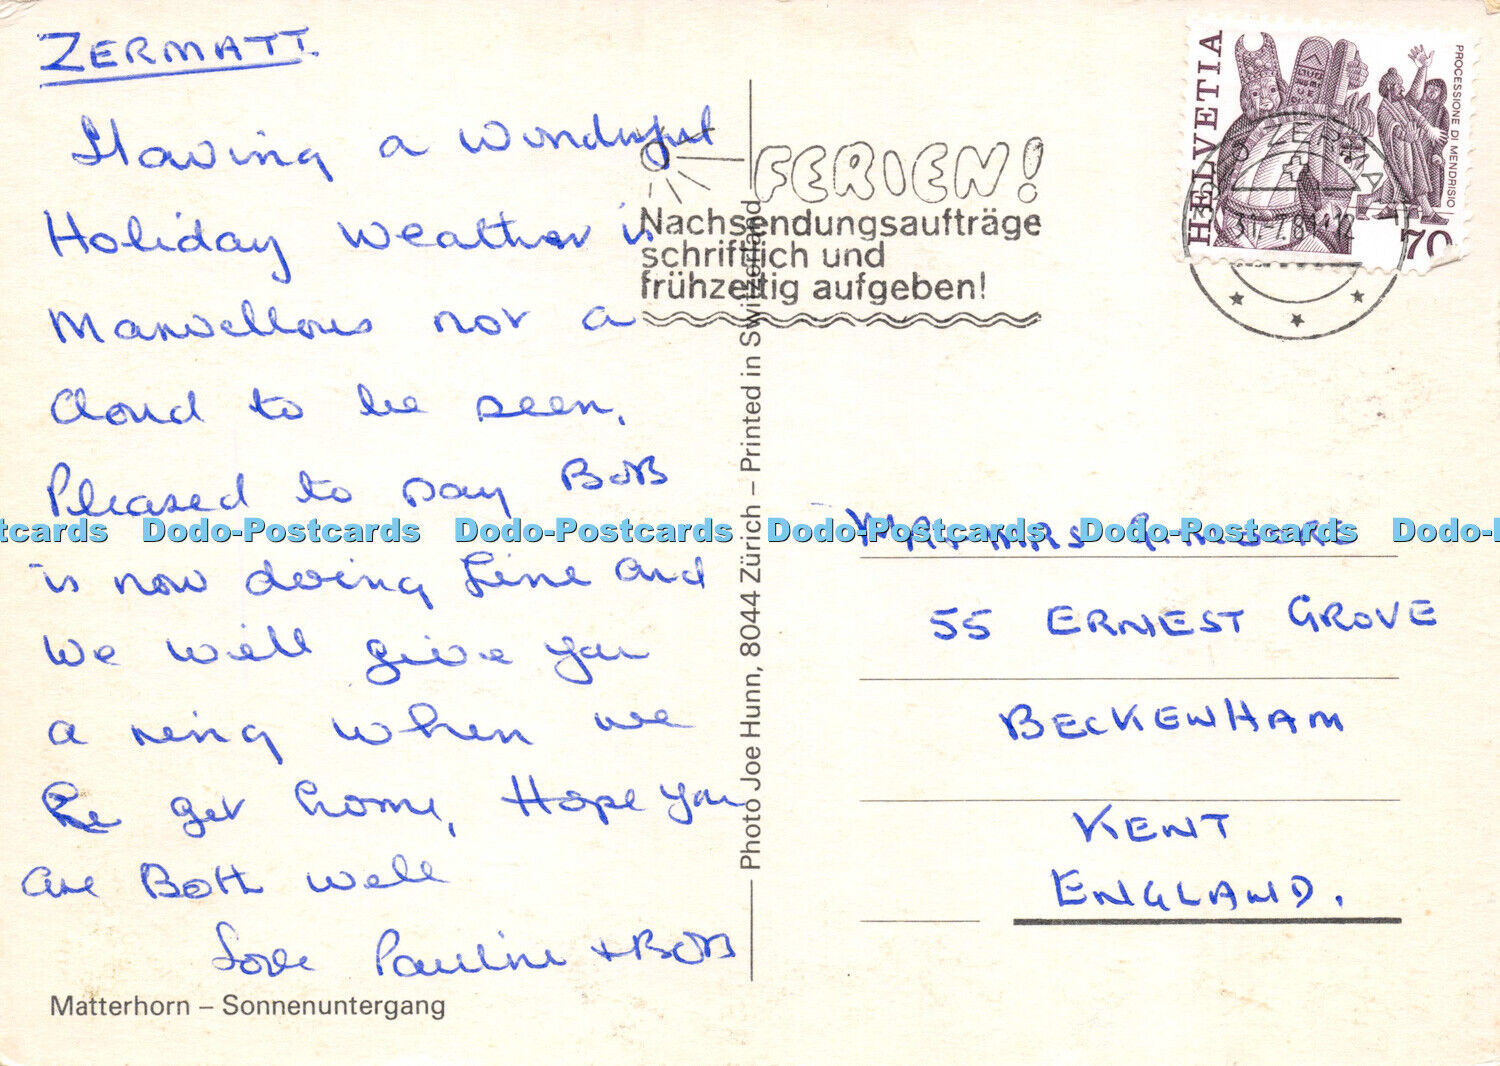 ZERMATT.
Having a Wonderful
Holiday Weather is
Marvellous not a
Cloud to be seen.
Pleased to say BOB
is now doing fine and
We will give you
a ring when we
get home, Hope you
are Both well
Love Pauline + BOB
Matterhorn – Sonnenuntergang
Photo Joe Hunn, 8044 Zürich – Printed in Switzerland
FERIEN!
Nachsendungsaufträge
schriftlich und
frühzeitig aufgeben!
HELVETIA
PROCESSIONE DI MENDRISIO
70
ZERMATT
31.-7.81-12
55 ERNEST GROVE
BECKENHAM
KENT
ENGLAND.
Dodo-Postcards Dodo-Postcards Dodo-Postcards Dodo-Postcards